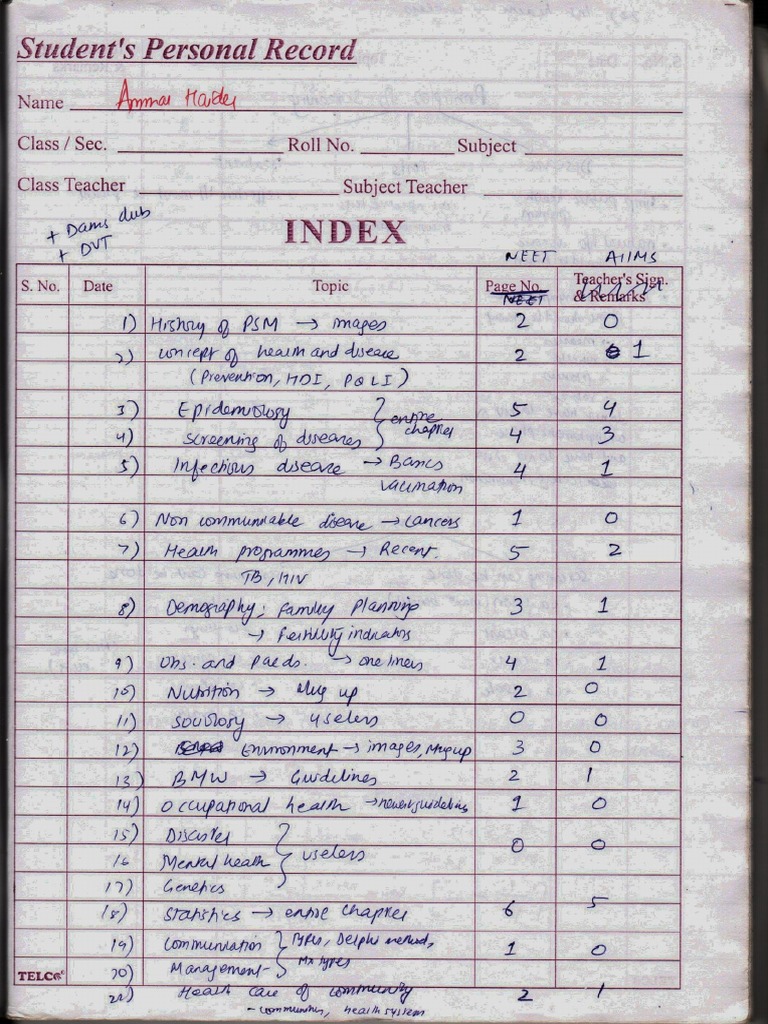 Student's Personal Record
Name Ammar Haider
Class / Sec. Roll No. Subject
Class Teacher Subject Teacher
+ Dams dub
+ DVT
INDEX
NEET AIIMS
S. No. Date Topic Page No. Teacher's Sign. & Remarks
NEET
1) History of PSM → images 2 0
2) Concept of health and disease 2 1
(Prevention, HDI, PQLI)
3) Epidemiology } entire chapter 5 4
4) Screening of diseases 4 3
5) Infectious disease → Basics 4 1
vaccination
6) Non communicable disease → cancers 1 0
7) Health programmes → Recent. 5 2
TB, HIV
8) Demography; Family Planning 3 1
→ Fertility indicators
9) Obs. and Paeds. → one liners 4 1
10) Nutrition → Mug up 2 0
11) Sociology → useless 0 0
12) Environment → images, Mug up 3 0
13) BMW → Guidelines 2 1
14) Occupational health → newer guidelines 1 0
15) Disaster
16 Mental health } useless 0 0
17) Genetics
18) Statistics → entire chapter 6 5
19) Communication } Types, Delphi method, 1 0
20) Management Mx types
TELCO
22) Health care of community 2 1
- communities, health system